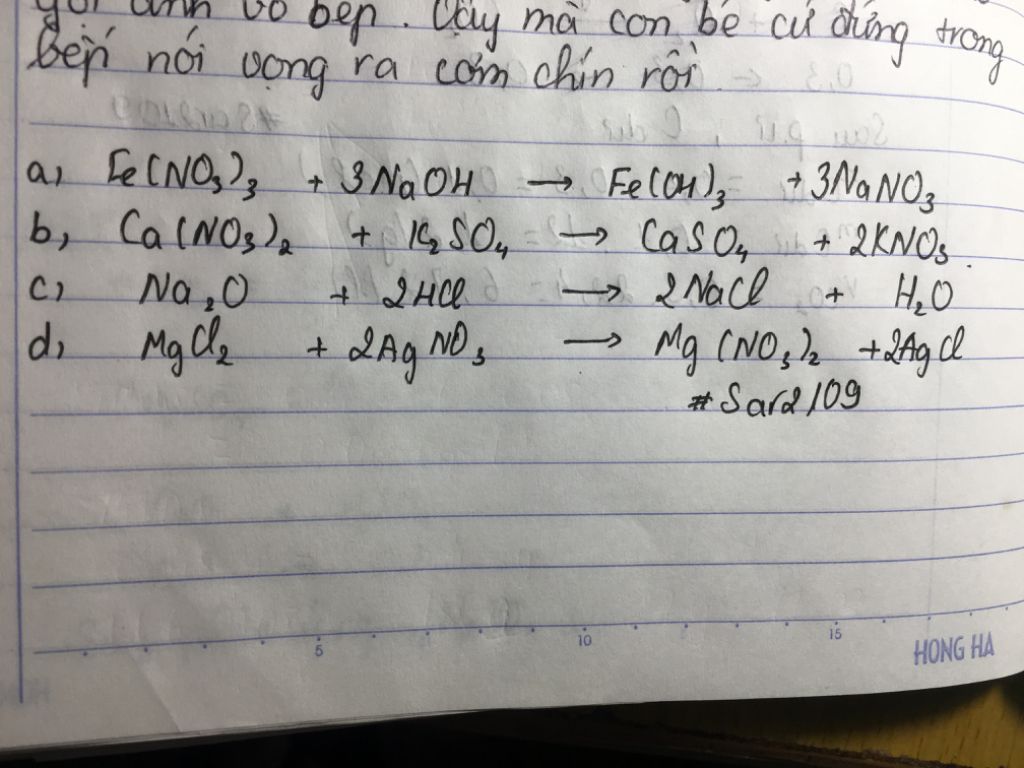 gọi anh vô bếp. Vậy mà con bé cứ đứng trong
bếp nói vọng ra cơm chín rồi
a, Fe(NO₃)₃ + 3NaOH → Fe(OH)₃ + 3NaNO₃
b, Ca(NO₃)₂ + K₂SO₄ → CaSO₄ + 2KNO₃.
c, Na₂O + 2HCl → 2NaCl + H₂O
d, MgCl₂ + 2AgNO₃ → Mg(NO₃)₂ + 2AgCl
#Sar2109
5 10 15
HONG HA